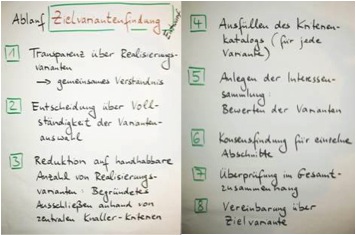 Ablauf Zielvariantenfindung
1 Transparenz über Realisierungs-
varianten
→ gemeinsames Verständnis
2 Entscheidung über Voll-
ständigkeit der Varianten-
auswahl
3 Reduktion auf handhabbare
Anzahl von Realisierungs-
varianten: Begründetes
Ausschließen anhand von
zentralen Knaller-Kriterien
4 Ausfüllen des Kriterien-
katalogs (für jede
Variante)
5 Anlegen der Interessen-
sammlung:
Bewerten der Varianten
6 Konsensfindung für einzelne
Abschnitte
7 Überprüfung im Gesamt-
zusammenhang
8 Vereinbarung über
Zielvariante